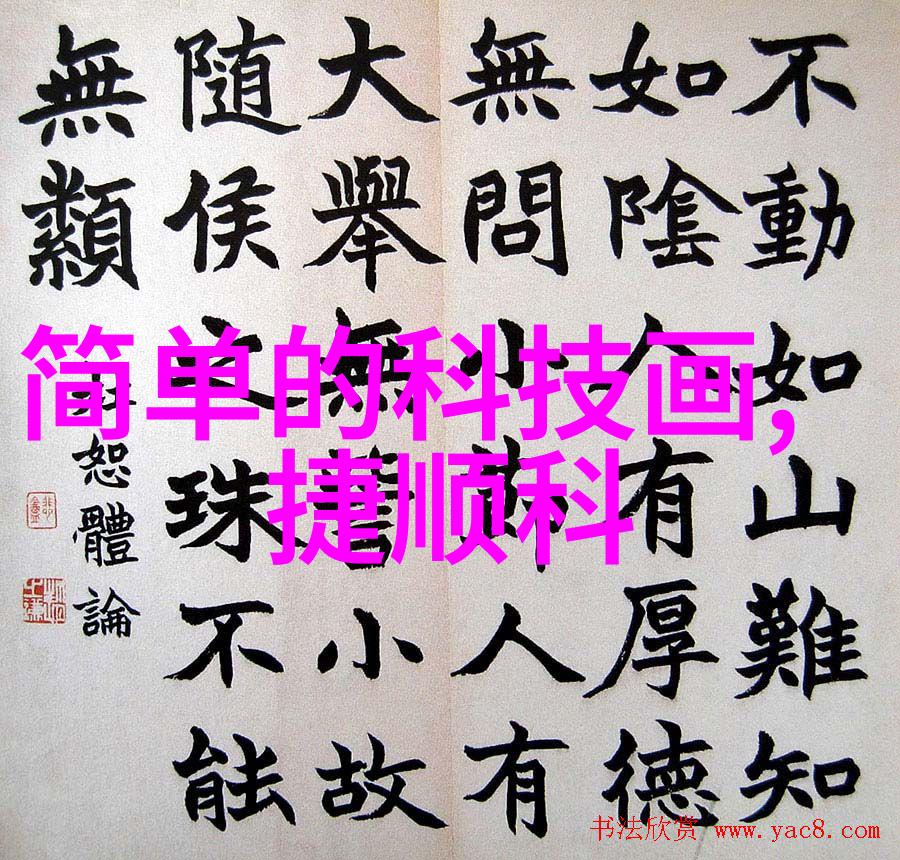 不動如山難知
如陰人有厚德
無問小節人有
大舉無訾小故
隨侯之珠不能
無纇
恕體論
简单的科技画,
捷顺科
书法欣赏 www.yac8.com